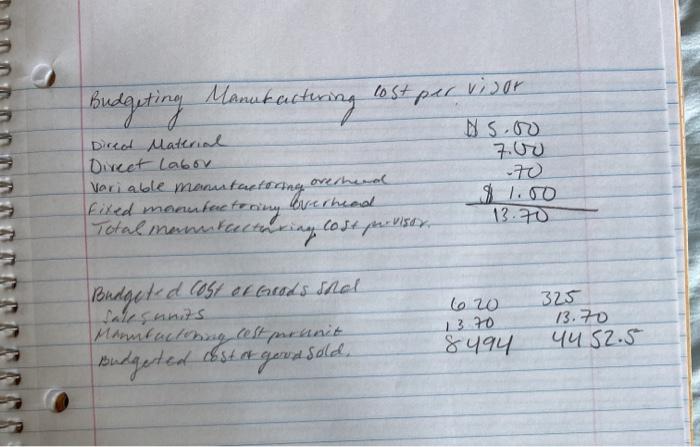 Budgeting Manufacturing cost per visor
Direct Material $ 5.00
Direct Labor 7.00
Variable manufactoring overhead .70
Fixed manufactoring overhead $ 1.00
Total manufacturing cost per visor. 13.70
Budgeted Cost of Goods Sold
Sales units 620 325
Manufactoring cost per unit 13.70 13.70
Budgeted cost of good sold. 8494 4452.5